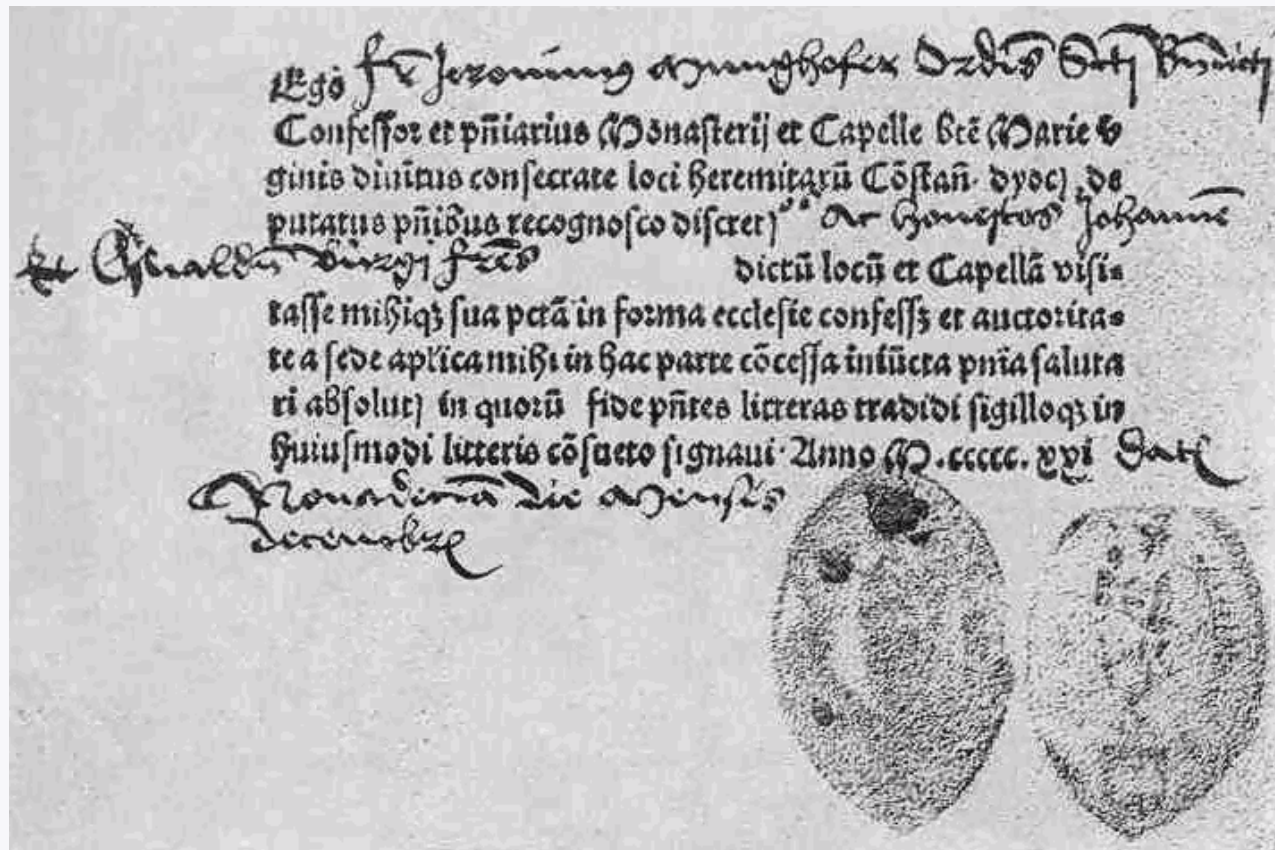 Ego fr̄ Jeronimus Munghofer Ordīs Sctī Bn̄dicti
Confessor et pn̄iarius Monasterij et Capelle btē Marie v
ginis diuītus consecrate loci heremitarū Cōstan̄. dyoc) de
putatus pn̄ibus recognosco discret) os Ac honestos Johannē
Et Oswaldū Bürgj frēs dictū locū et Capellā visi⸗
tasse mihiqꝫ sua pctā in forma ecclesie confessꝫ et auctorita⸗
te a sede aplica mihi in hac parte cōcessa iniūcta pn̄ia saluta
ri absolut) in quorū fide pn̄tes litteras tradidi sigilloqꝫ in
huiusmodi litteris cōsueto signaui. Anno M.ccccc.xxi Datꝭ
Nonadecīa die Mensis
decembrꝭ